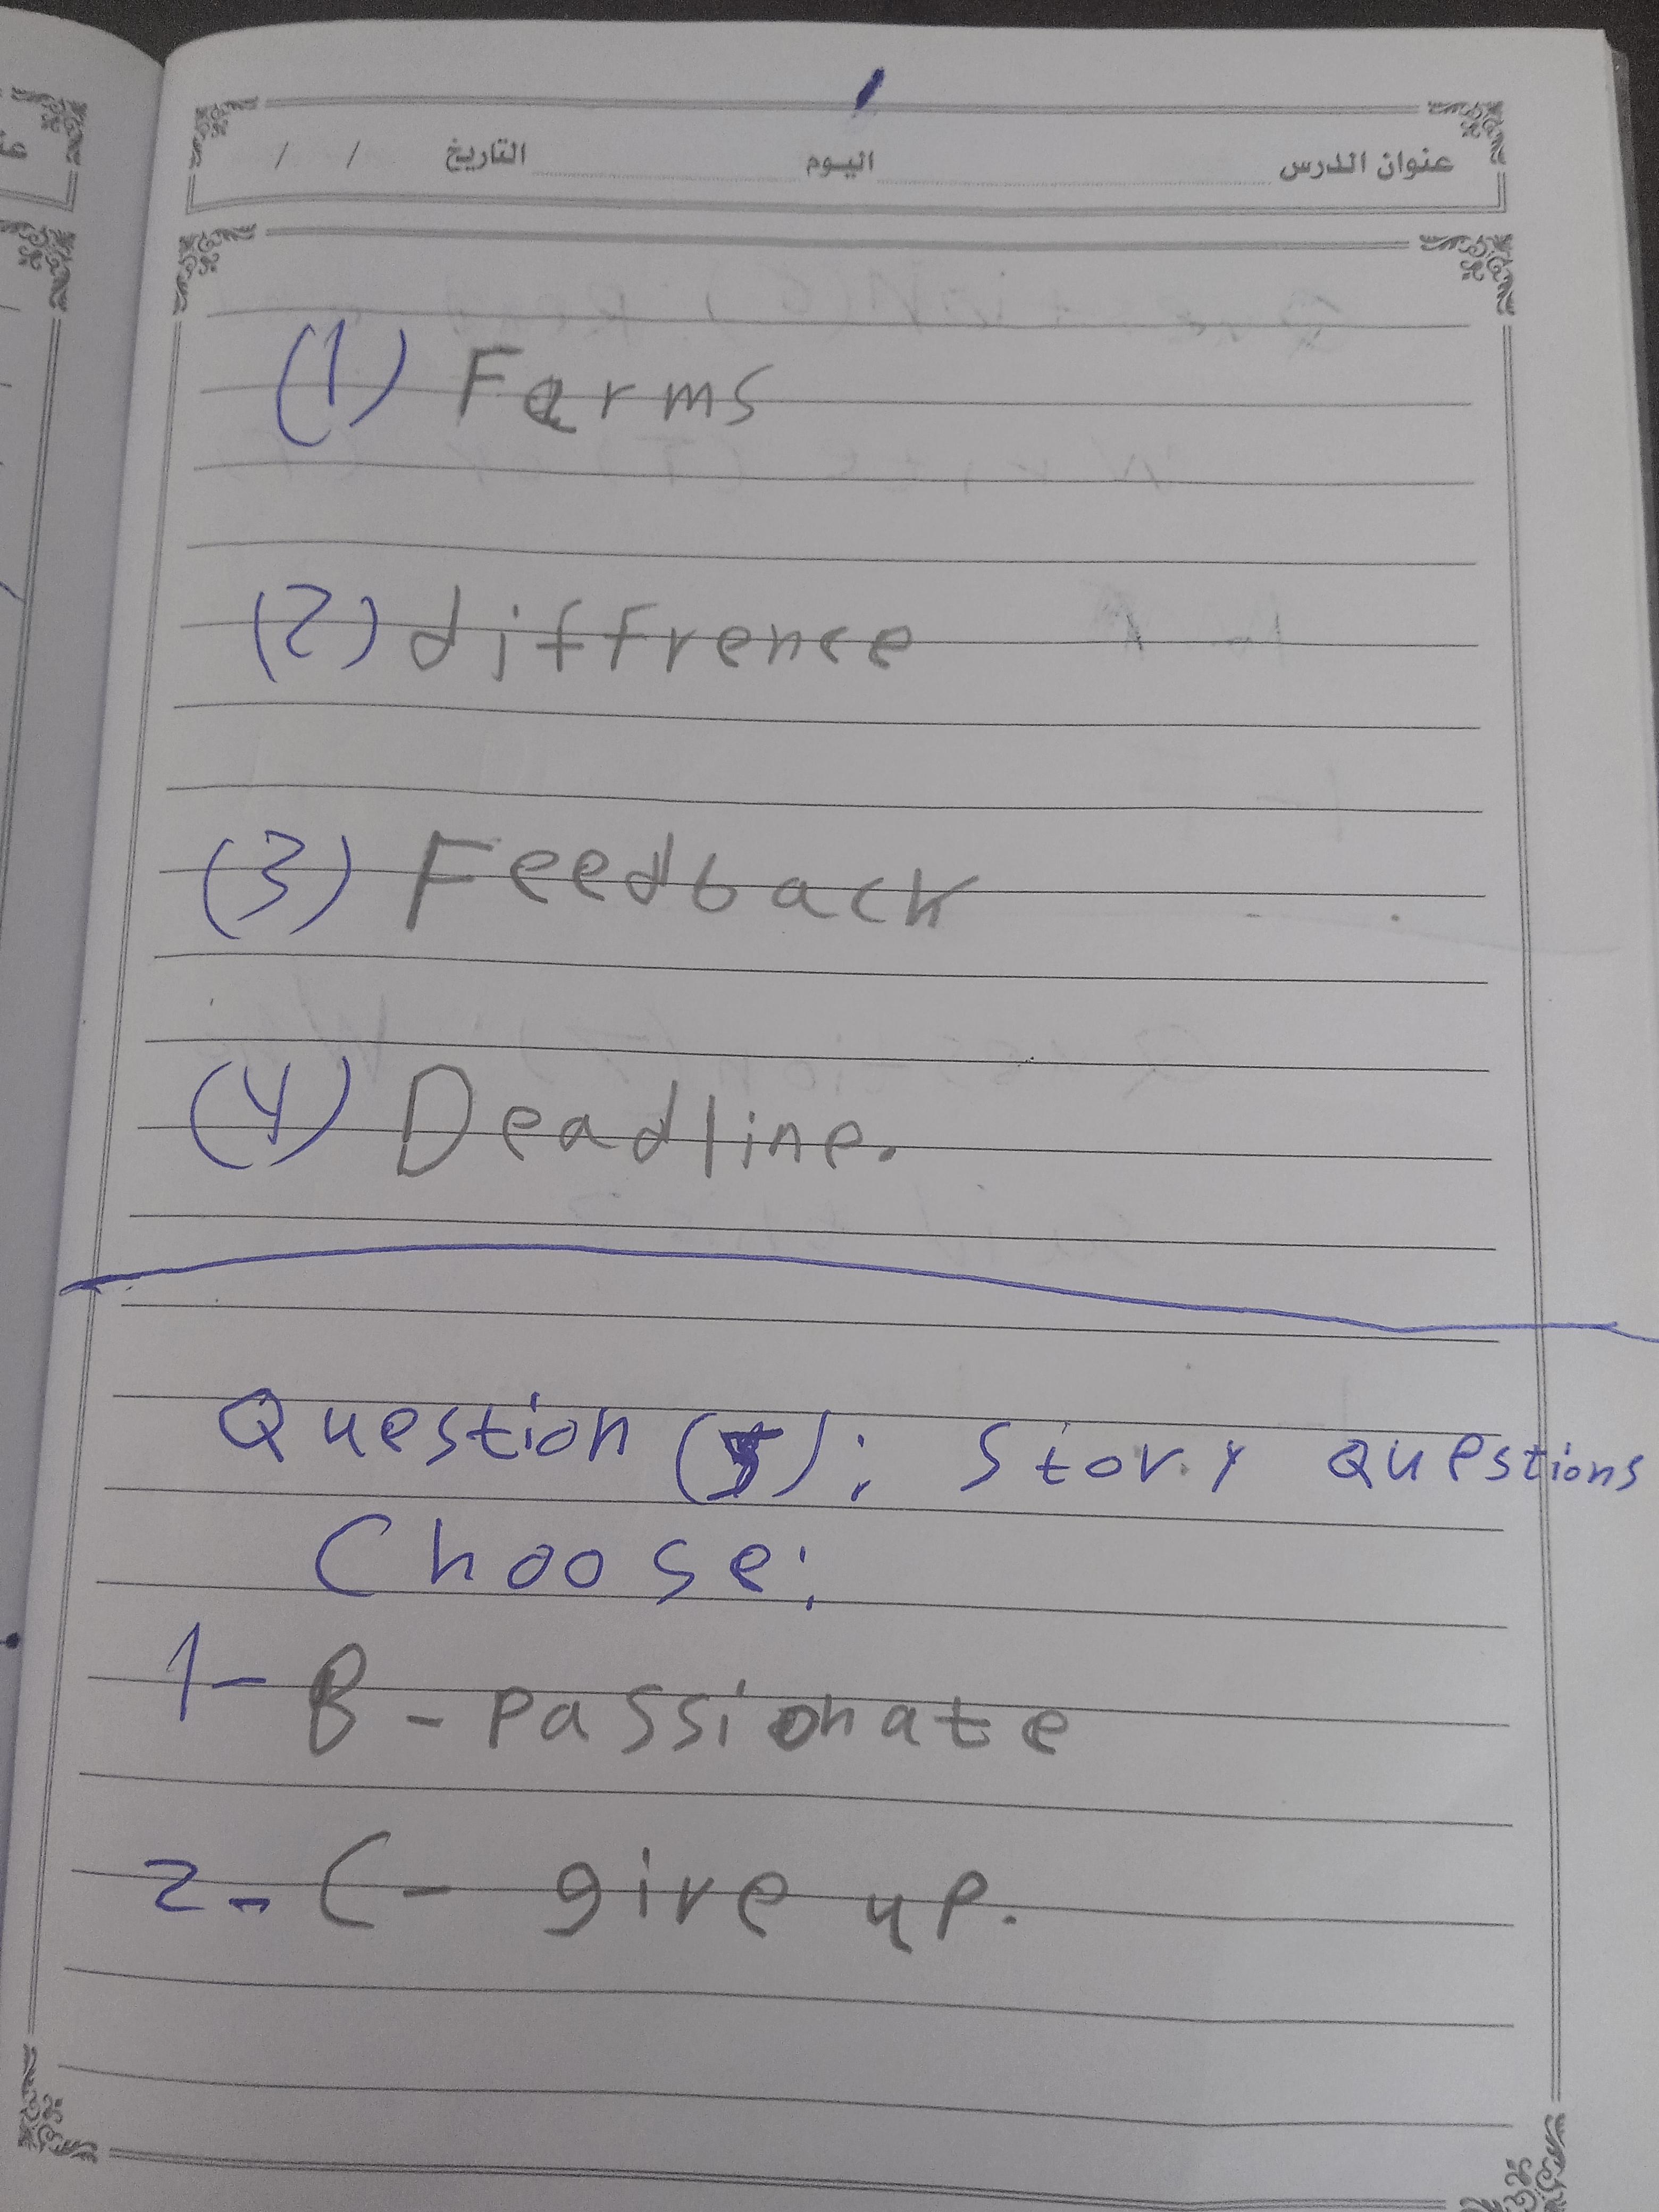 عنوان الدرس اليوم التاريخ / /
(1) Farms
(2) diffrence
(3) Feedback
(4) Deadline.
Question (5): Story Questions
Choose:
1- B - Passionate
2- C - give up.